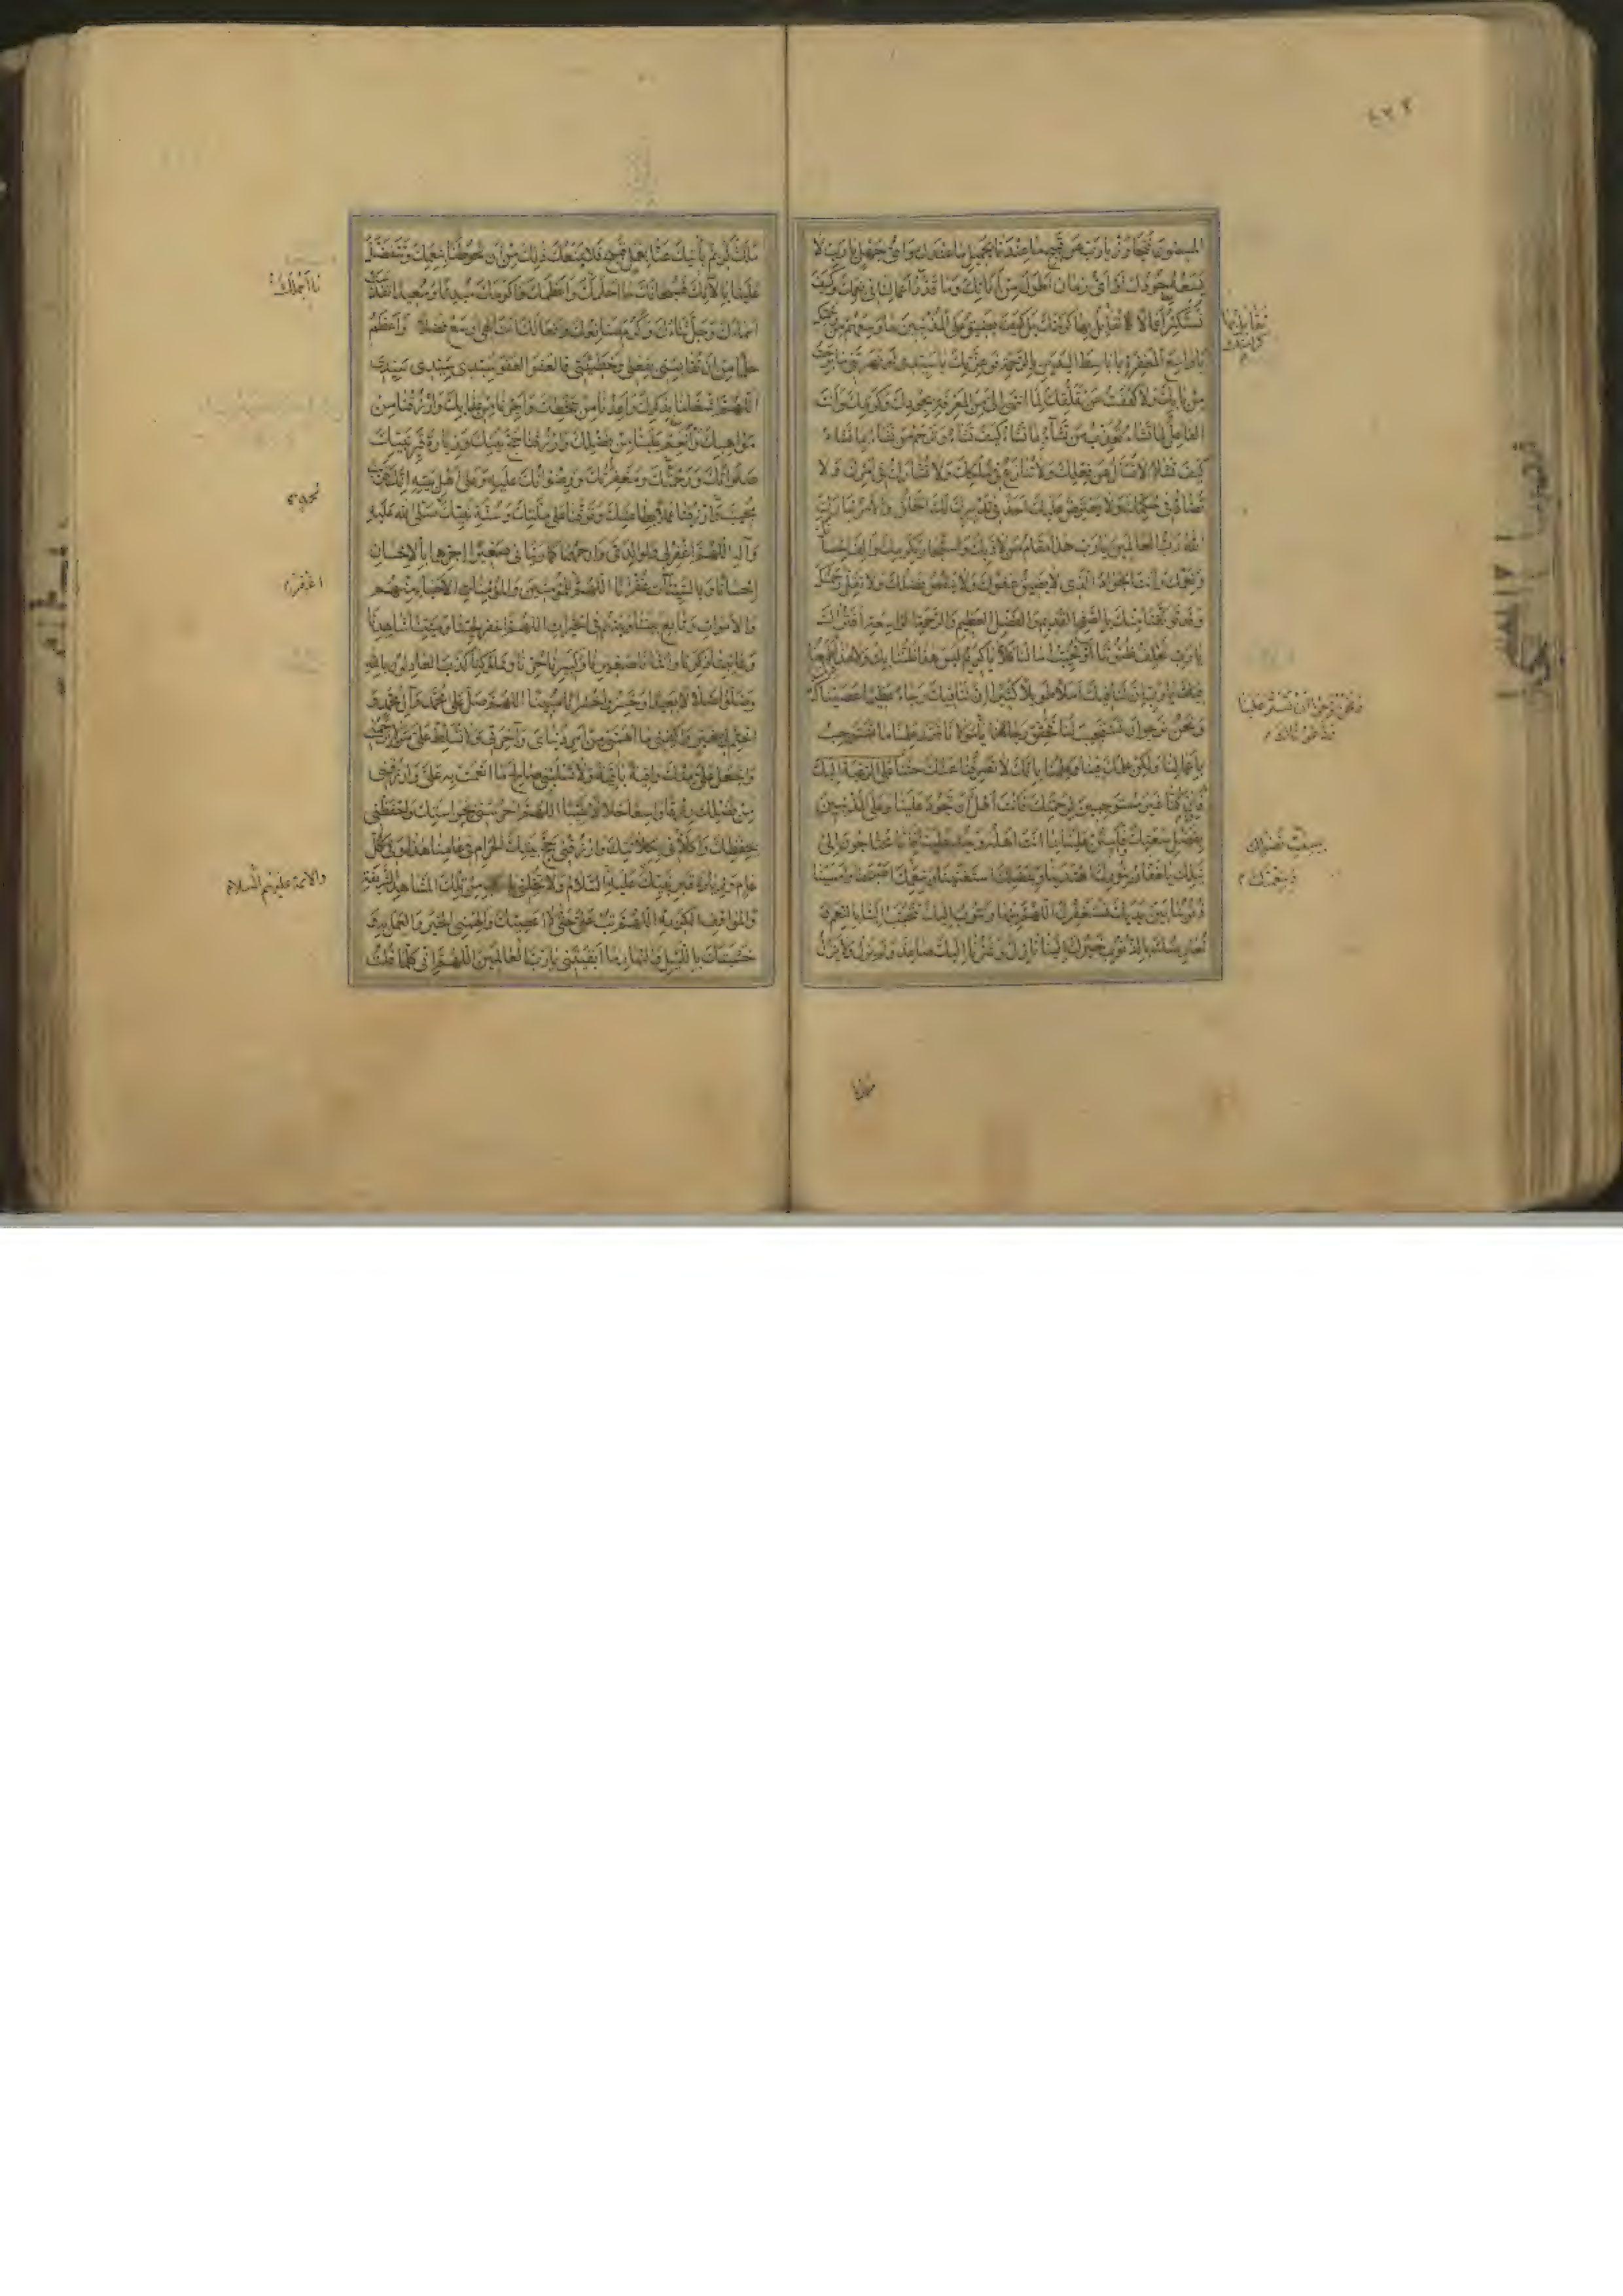 المسيئون فتجاوز يا رب عن قبيح ما عندنا بجميل ما عندك واي جهل يا رب لا
يسعه جودك او اي زمان اطول من اناتك وما قدر اعمالنا في نعمك وكيف
نستكثر اعمالا نقابل بها كرمك بل كيف يضيق على المذنبين ما وسعهم من رحمتك
يا واسع المغفرة يا باسط اليدين بالرحمة فوعزتك يا سيدي لو نهرتني ما برحت
من بابك ولا كففت عن تملقك لما انتهى الي من المعرفة بجودك وكرمك وانت
الفاعل لما تشاء تعذب من تشاء بما تشاء كيف تشاء وترحم من تشاء بما تشاء
كيف تشاء لا تسأل عن فعلك ولا تنازع في ملكك ولا تشارك في امرك ولا
تضاد في حكمك ولا يعترض عليك احد في تدبيرك لك الخلق والامر تبارك
الله رب العالمين يا رب هذا مقام من لاذ بك واستجار بكرمك والف احسانك
ونعمك وانت الجواد الذي لا يضيق عفوك ولا ينقص فضلك ولا تقل رحمتك
وقد توثقنا منك بالصفح القديم والفضل العظيم والرحمة الواسعة افتراك
يا رب تخلف ظنوننا او تخيب امالنا كلا يا كريم ليس هذا ظننا بك ولا هذا طمعنا
فيك يا رب ان لنا فيك املا طويلا كثيرا ان لنا فيك رجاء عظيما عصيناك
ونحن نرجو ان تستجيب لنا فحقق رجاءنا يا مولانا فقد علمنا ما نستوجب
باعمالنا ولكن علمك فينا وعلمنا بانك لا تصرفنا عنك حثنا على الرغبة اليك
فان كنا غير مستوجبين لرحمتك فانت اهل ان تجود علينا وعلى المذنبين
بفضل سعتك فامنن علينا بما انت اهله وجد علينا فانا محتاجون الى
نيلك يا غفار بنورك اهتدينا وبفضلك استغنينا وبنعمتك اصبحنا وامسينا
ذنوبنا بين يديك نستغفرك اللهم منها ونتوب اليك تتحبب الينا بالنعم و
نعارضك بالذنوب خيرك الينا نازل وشرنا اليك صاعد ولم يزل ولا يزال
ونحن نرجو ان تستر علينا
ملك كريم يأتيك عنا بعمل قبيح فلا يمنعك ذلك من ان تحوطنا بنعمك وتتفضل
علينا بآلائك فسبحانك ما احلمك واعظمك واكرمك مبدئا ومعيدا تقدست
اسماؤك وجل ثناؤك وكرم صنائعك وفعالك انت الهي اوسع فضلا واعظم
حلما من ان تقايسني بفعلي وخطيئتي فالعفو العفو سيدي سيدي سيدي
اللهم اشغلنا بذكرك واعذنا من سخطك واجرنا من عذابك وارزقنا من
مواهبك وانعم علينا من فضلك وارزقنا حج بيتك وزيارة قبر نبيك
صلواتك ورحمتك ومغفرتك ورضوانك عليه وعلى اهل بيته انك قريب
مجيب وارزقنا عملا بطاعتك وتوفنا على ملتك وسنة نبيك صلى الله عليه
وآله اللهم اغفر لي ولوالدي وارحمهما كما ربياني صغيرا اجزهما بالاحسان
احسانا وبالسيئات غفرانا اللهم للمؤمنين والمؤمنات الاحياء منهم
والاموات وتابع بيننا وبينهم في الخيرات اللهم اغفر لحينا وميتنا شاهدنا
وغائبنا ذكرنا وانثانا صغيرنا وكبيرنا حرنا ومملوكنا كذب العادلون بالله
وضلوا ضلالا بعيدا وخسروا خسرانا مبينا اللهم صل على محمد وآل محمد و
اختم لي بخير واكفني ما اهمني من امر دنياي وآخرتي ولا تسلط علي من لا يرحمني
واجعل علي منك واقية باقية ولا تسلبني صالح ما انعمت به علي وارزقني
من فضلك رزقا واسعا حلالا طيبا اللهم احرسني بحراستك واحفظني
بحفظك واكلأني بكلاءتك وارزقني حج بيتك الحرام في عامنا هذا وفي كل
عام وزيارة قبر نبيك عليه السلام ولا تخلني يا رب من تلك المشاهد الشريفة
والمواقف الكريمة اللهم تب علي حتى لا اعصيك والهمني الخير والعمل به و
خشيتك بالليل والنهار ما ابقيتني يا رب العالمين اللهم اني كلما قلت
اغفر
والائمة عليهم السلام